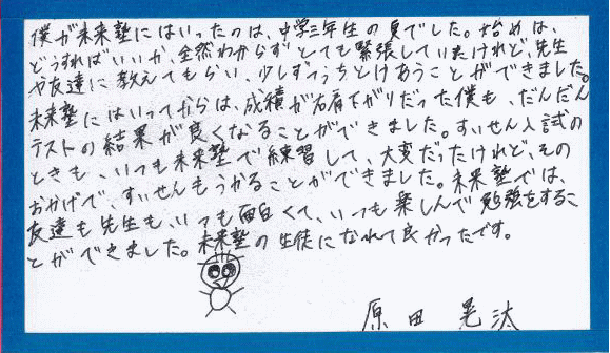 僕が未来塾にはいったのは、中学三年生の夏でした。始めは、
どうすればいいか、全然わからずとても緊張していたけれど、先生
や友達に教えてもらい、少しずつうちとけあうことができました。
未来塾にはいってからは、成績が右肩下がりだった僕も、だんだん
テストの結果が良くなることができました。すいせん入試の
ときも、いつも未来塾で練習して、大変だったけれど、その
おかげで、すいせんもうかることができました。未来塾では、
友達も先生も、いつも面白くて、いつも楽しんで勉強をするこ
とができました。未来塾の生徒になれて良かったです。
原田 晃汰